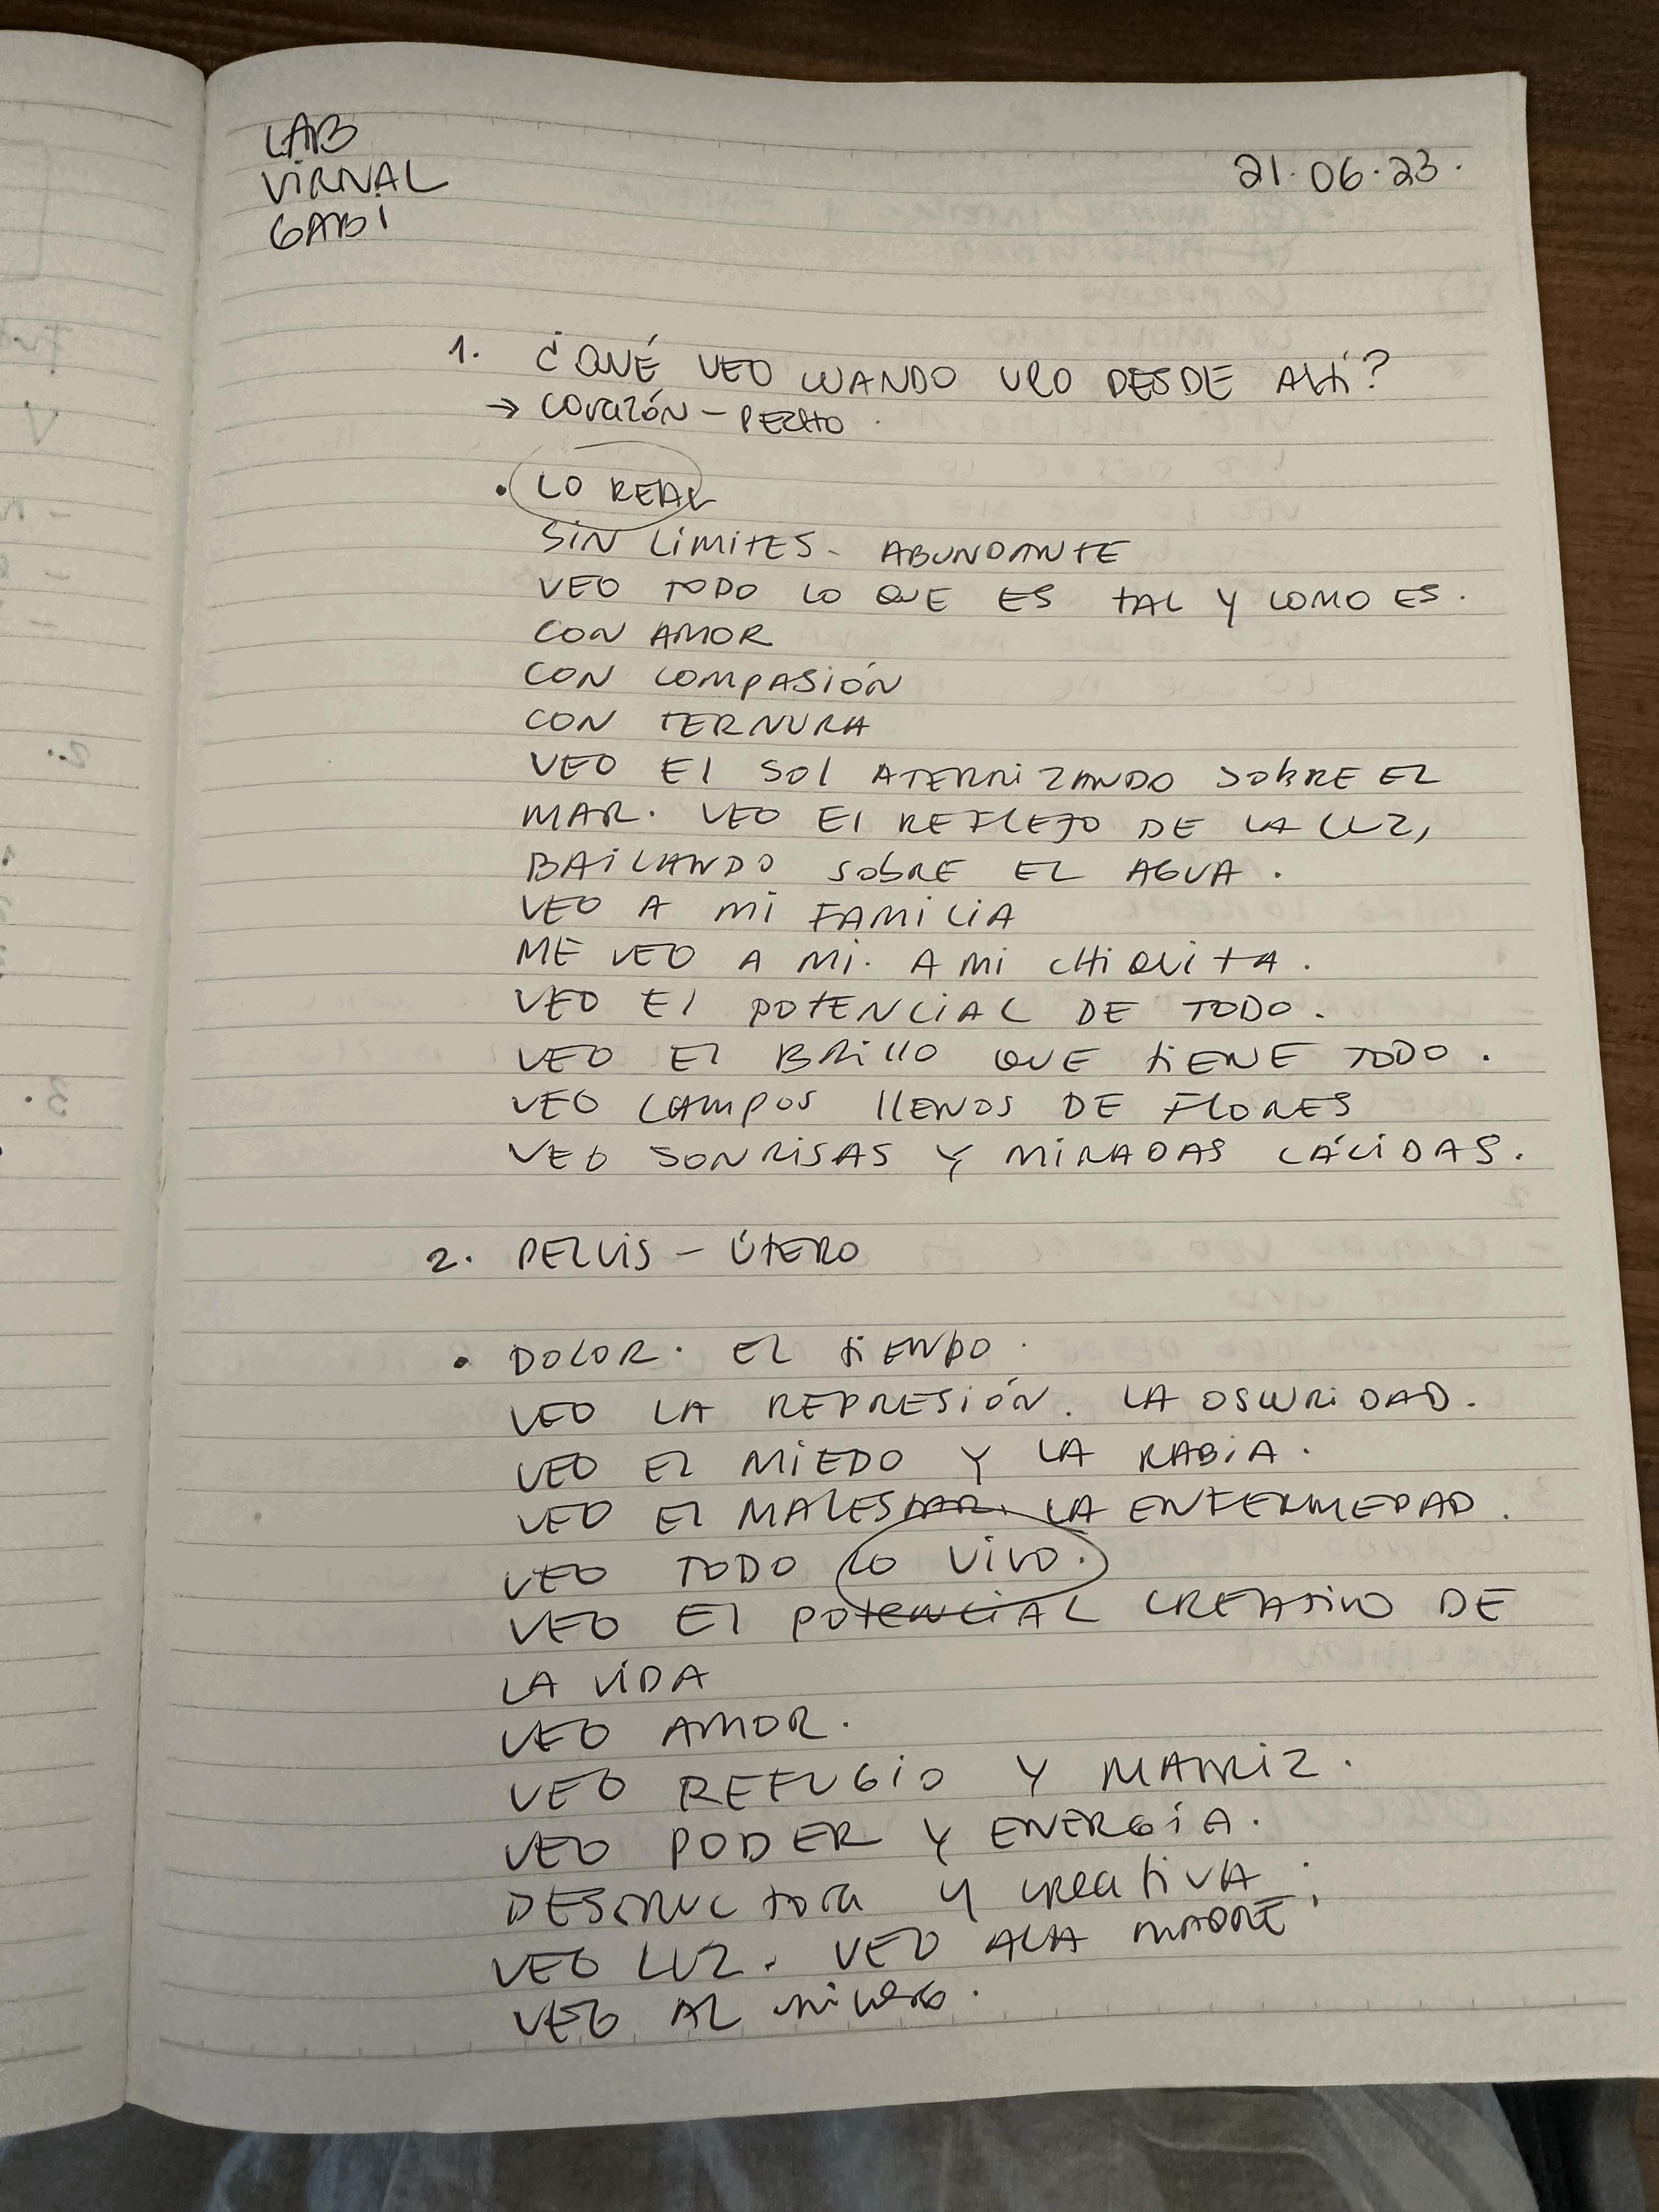 LAB
VIRNAL
GABI
21.06.23.
1. ¿QUÉ VEO CUANDO VEO DESDE AHÍ?
→ CORAZÓN – PECHO.
• LO REAL
SIN LIMITES - ABUNDANTE
VEO TODO LO QUE ES TAL Y COMO ES.
CON AMOR
CON COMPASIÓN
CON TERNURA
VEO El Sol ATERRIZANDO SOBRE EL
MAR. VEO El REFLEJO DE LA LUZ,
BAILANDO SOBRE EL AGUA.
VEO A MI FAMILIA
ME VEO A MI. A MI CHIQUITA.
VEO El POTENCIAL DE TODO.
VEO El BRIllO QUE TIENE TODO.
VEO CAMPOS llENOS DE FLORES
VEO SONRISAS Y MIRADAS CÁLIDAS.
2. PELVIS – ÚTERO
• DOLOR. EL TIEMPO.
VEO LA REPRESIÓN. LA OSCURIDAD.
VEO EL MIEDO Y LA RABIA.
VEO El MALESTAR. LA ENFERMEDAD.
VEO TODO LO VIVO.
VEO El POTENCIAL CREATIVO DE
LA VIDA
VEO AMOR.
VEO REFUGIO Y MATRIZ.
VEO PODER Y ENERGÍA.
DESTRUCTORA Y CREATIVA.
VEO LUZ. VEO A LA MADRE,
VEO AL